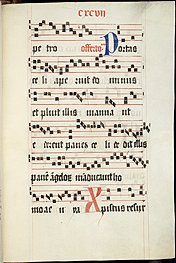 cxcvii
petro offerto Portas
celi aperuit do minus
et pluit illis manna ut
ederent panem celi dedit illis
pane ãgeloꝝ māducauit ho
mo ae u ya Xpistus resur